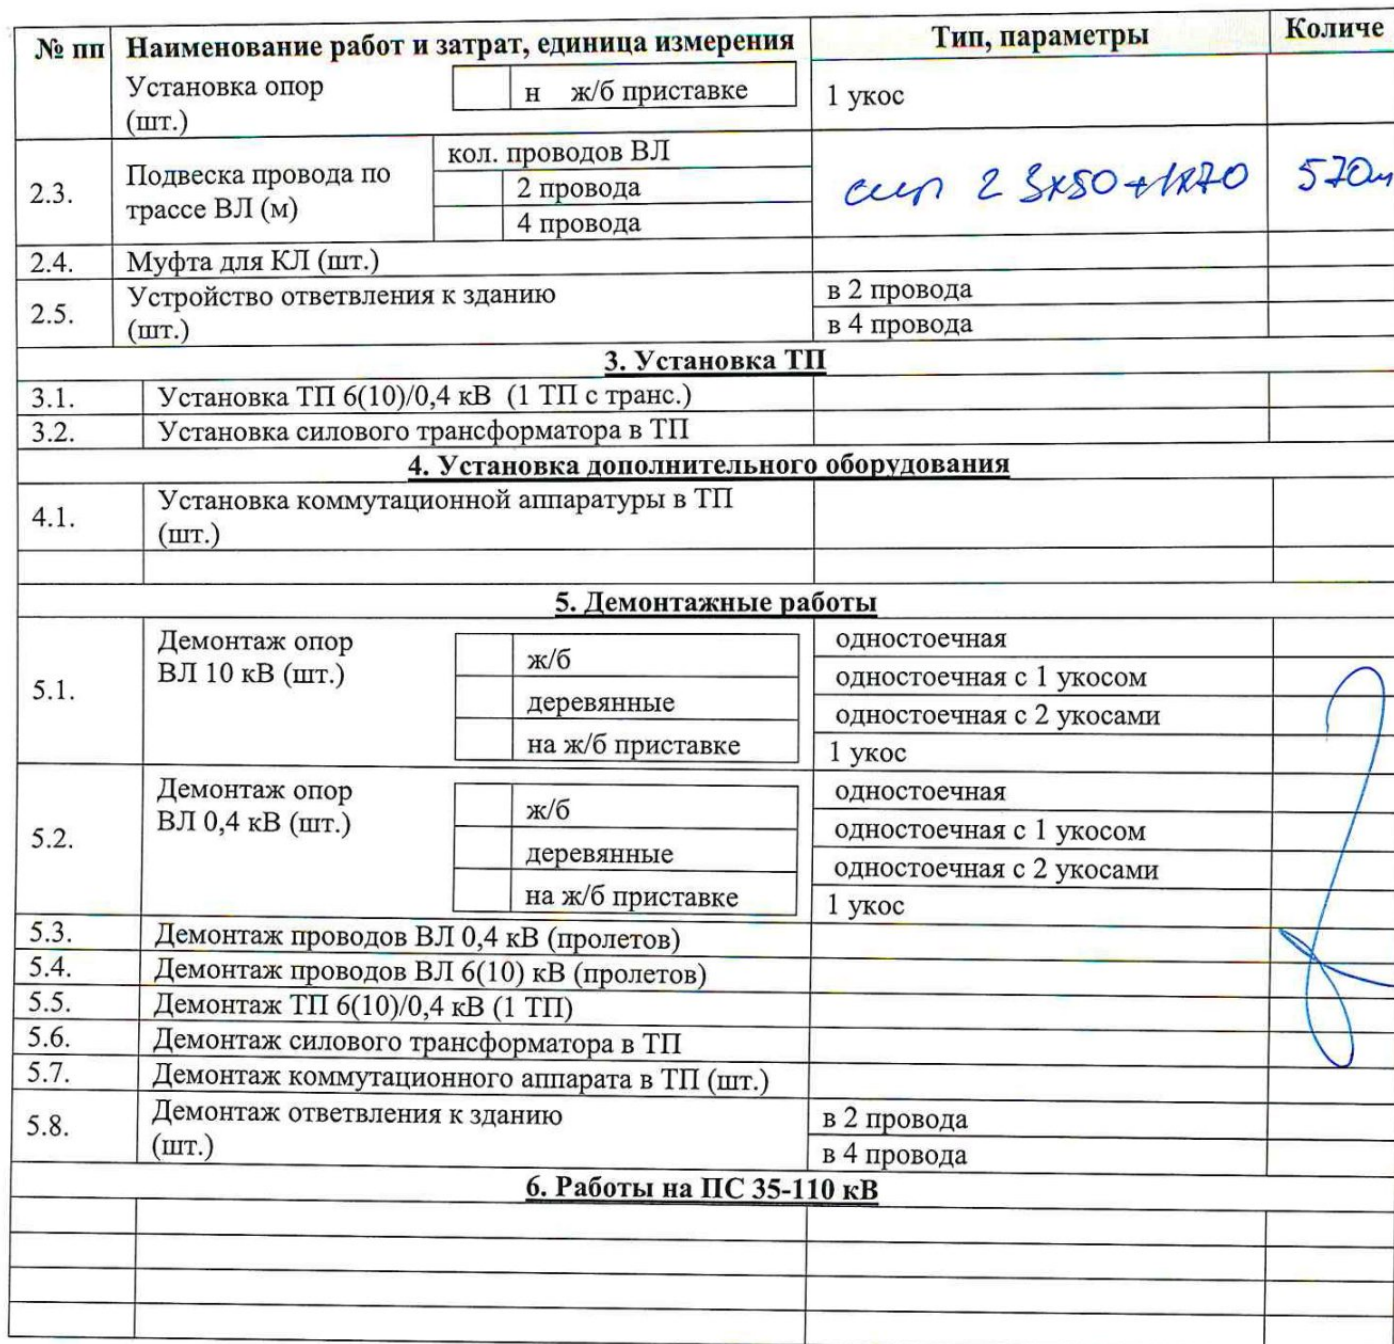 № пп Наименование работ и затрат, единица измерения Тип, параметры Количе
Установка опор н ж/б приставке 1 укос
(шт.)
2.3. Подвеска провода по трассе ВЛ (м) кол. проводов ВЛ сип 2 3х50+1х70 570м
2 провода
4 провода
2.4. Муфта для КЛ (шт.)
2.5. Устройство ответвления к зданию в 2 провода
(шт.) в 4 провода
3. Установка ТП
3.1. Установка ТП 6(10)/0,4 кВ (1 ТП с транс.)
3.2. Установка силового трансформатора в ТП
4. Установка дополнительного оборудования
4.1. Установка коммутационной аппаратуры в ТП
(шт.)
5. Демонтажные работы
5.1. Демонтаж опор ж/б одностоечная
ВЛ 10 кВ (шт.) деревянные одностоечная с 1 укосом
одностоечная с 2 укосами
на ж/б приставке 1 укос
5.2. Демонтаж опор ж/б одностоечная
ВЛ 0,4 кВ (шт.) деревянные одностоечная с 1 укосом
одностоечная с 2 укосами
на ж/б приставке 1 укос
5.3. Демонтаж проводов ВЛ 0,4 кВ (пролетов)
5.4. Демонтаж проводов ВЛ 6(10) кВ (пролетов)
5.5. Демонтаж ТП 6(10)/0,4 кВ (1 ТП)
5.6. Демонтаж силового трансформатора в ТП
5.7. Демонтаж коммутационного аппарата в ТП (шт.)
5.8. Демонтаж ответвления к зданию в 2 провода
(шт.) в 4 провода
6. Работы на ПС 35-110 кВ